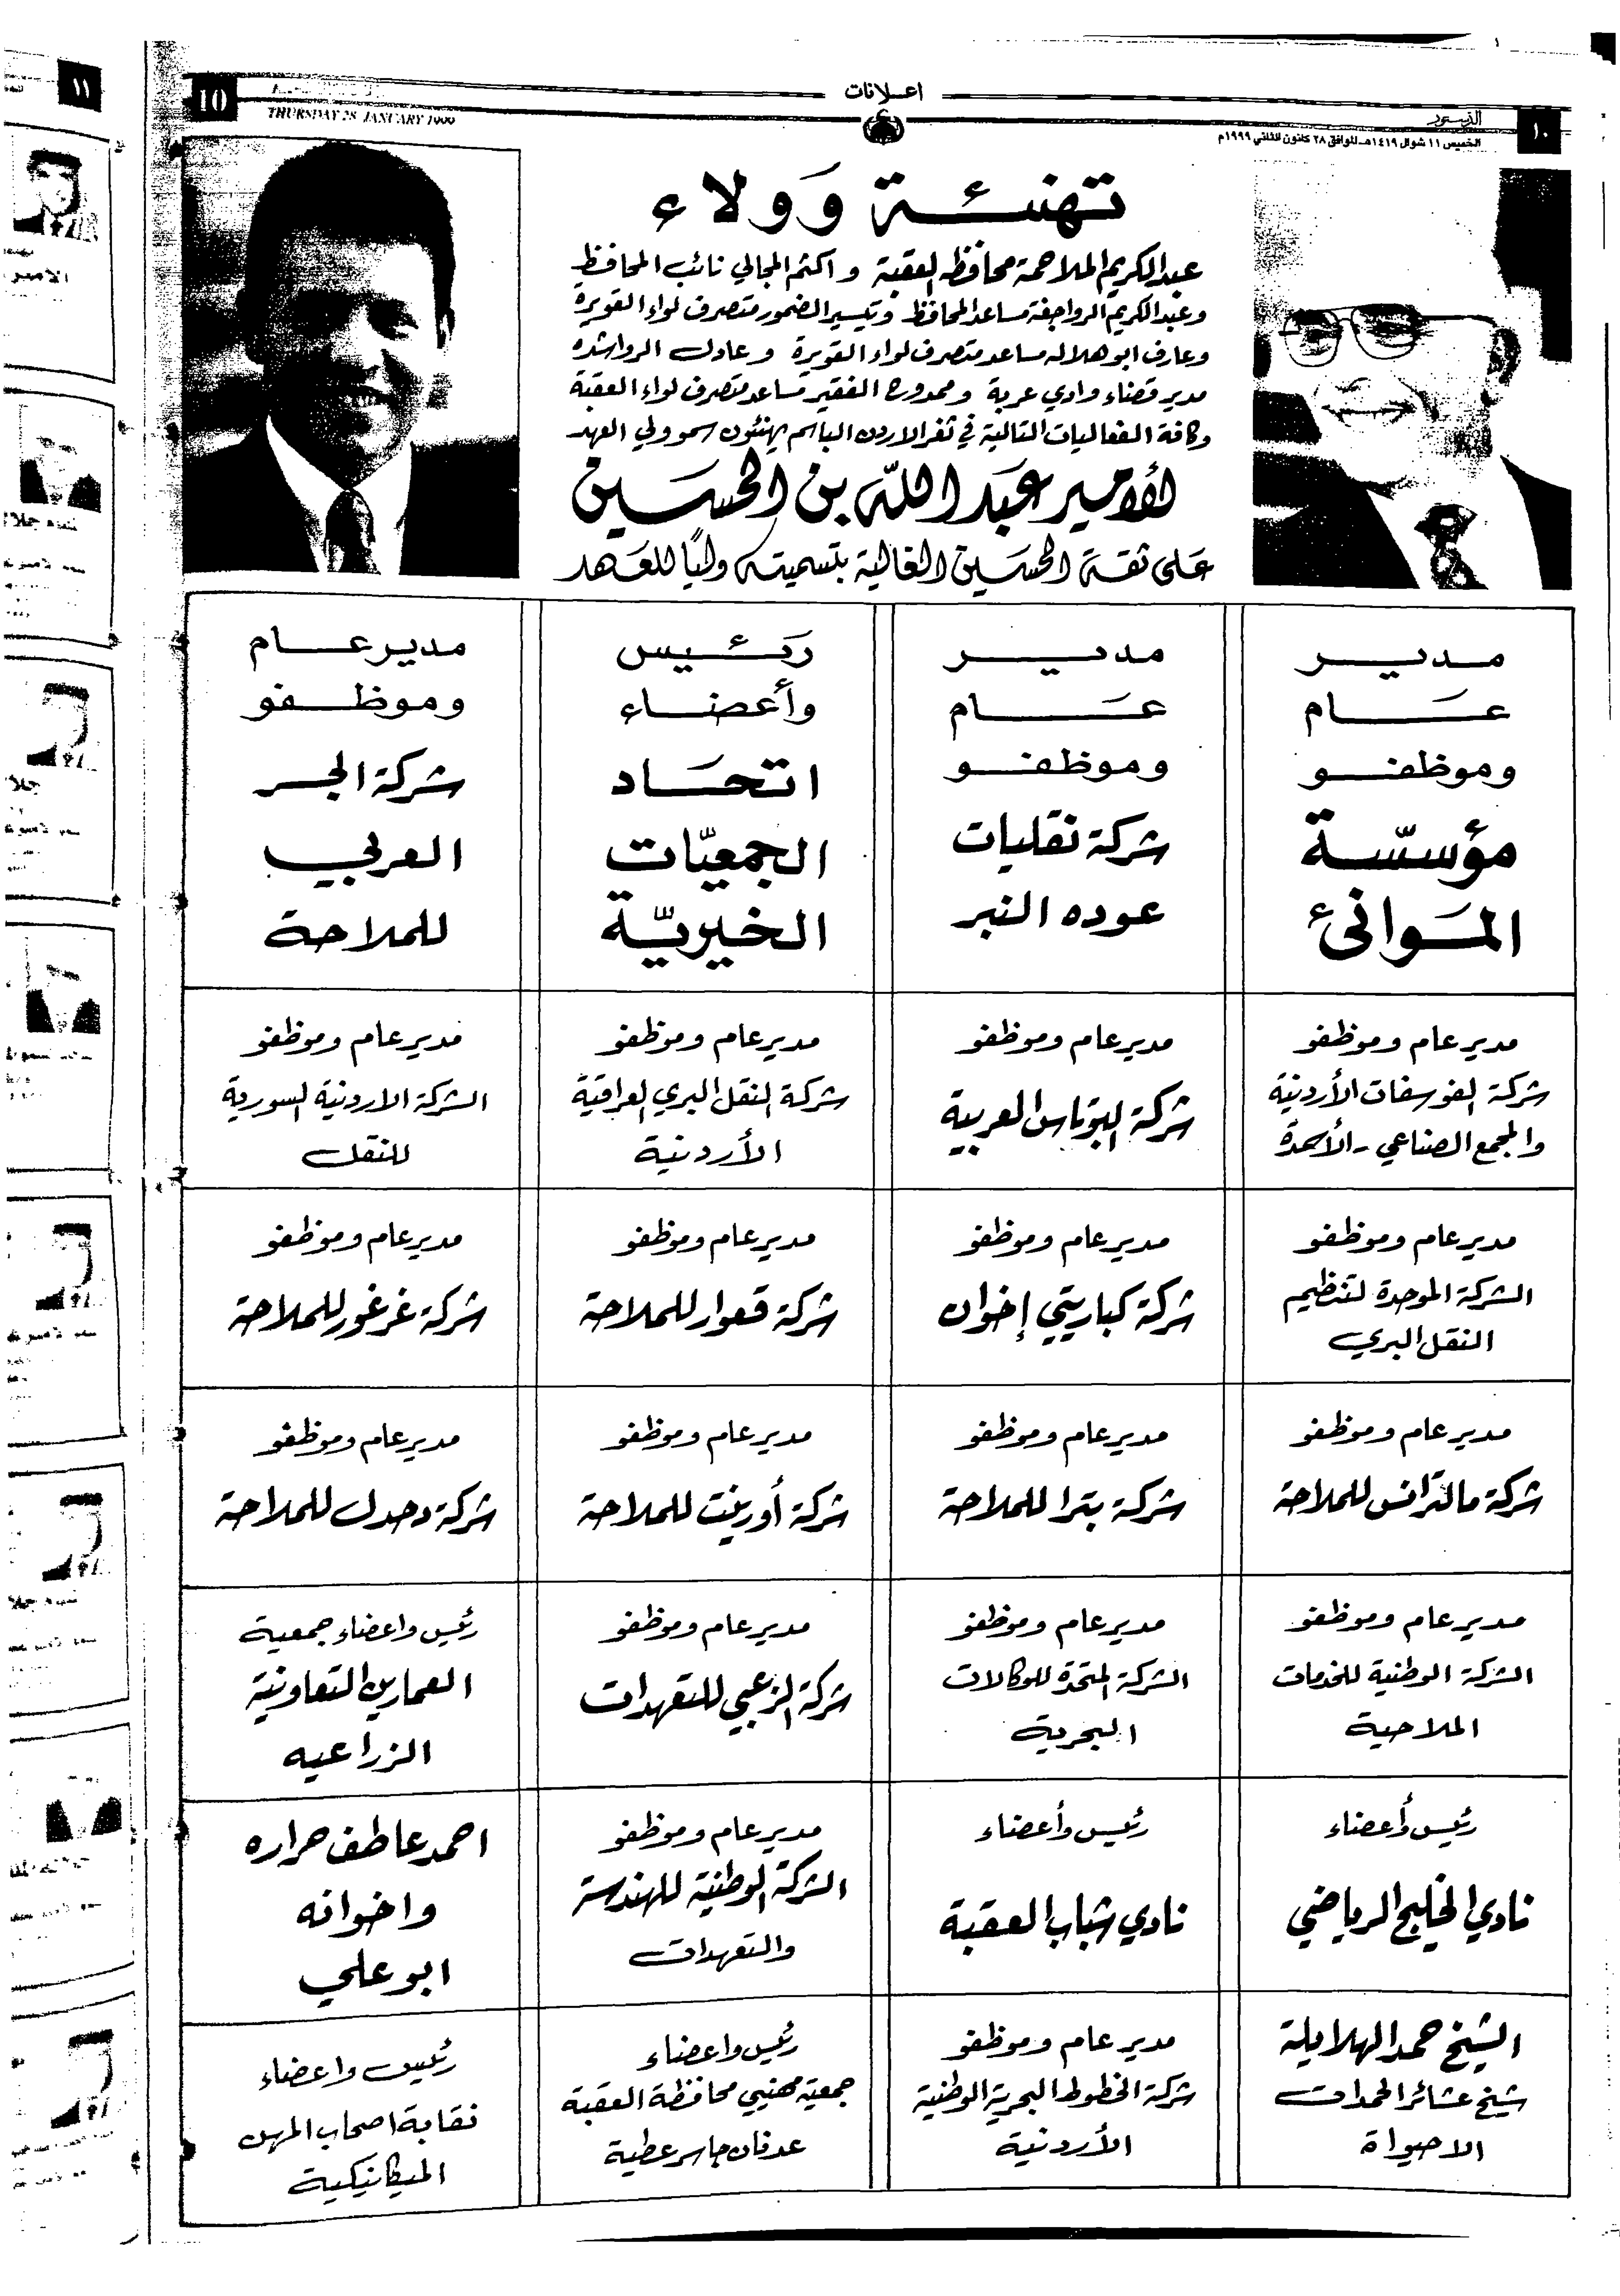 اعلانات
10
THURSDAY 28 JANUARY 1999
الدستور
الخميس ١١ شوال ١٤١٩هـ الموافق ٢٨ كانون الثاني ١٩٩٩م
١٠
١١
تهنئة وَولاء
عبدالكريم الملاحمة محافظ العقبة واكثم المجالي نائب المحافظ
وعبدالكريم الرواجفة مساعد المحافظ وتيسير الضمور متصرف لواء القويرة
وعارف ابوهلاله مساعد متصرف لواء القويرة وعادل الرواشده
مدير قضاء وادي عربة وممدوح الفقير مساعد متصرف لواء العقبة
وكافة الفعاليات التالية في ثغر الاردن الباسم يهنئون سمو ولي العهد
الأمير عبدالله بن الحسين
على ثقة الحسين الغالية بتسميته وليًا للعهد
مدير
عام
وموظفو
مؤسسّة
الموانئ
مدير
عام
وموظفو
شركة نقليات
عوده النبر
رئيس
وأعضاء
اتحاد
الجمعيّات
الخيريّة
مدير عام
وموظفو
شركة الجسر
العربي
للملاحة
مدير عام وموظفو
شركة الفوسفات الأردنية
والمجمع الصناعي - الأسمدة
مدير عام وموظفو
شركة البوتاس العربية
مدير عام وموظفو
شركة النقل البري العراقية
الأردنية
مدير عام وموظفو
الشركة الاردنية السورية
للنقل
مدير عام وموظفو
الشركة الموحدة لتنظيم
النقل البري
مدير عام وموظفو
شركة كباريتي إخوان
مدير عام وموظفو
شركة قعوار للملاحة
مدير عام وموظفو
شركة غرغور للملاحة
مدير عام وموظفو
شركة مالترانس للملاحة
مدير عام وموظفو
شركة بترا للملاحة
مدير عام وموظفو
شركة أورينت للملاحة
مدير عام وموظفو
شركة دحدل للملاحة
مدير عام وموظفو
الشركة الوطنية للخدمات
الملاحية
مدير عام وموظفو
الشركة المتحدة للوكالات
البحرية
مدير عام وموظفو
شركة الزعبي للتعهدات
رئيس واعضاء جمعية
العمارين التعاونية
الزراعيه
رئيس وأعضاء
نادي الخليج الرياضي
رئيس وأعضاء
نادي شباب العقبة
مدير عام وموظفو
الشركة الوطنية للهندسة
والتعهدات
احمد عاطف حراره
واخوانه
ابو علي
الشيخ حمد الهلايلة
شيخ عشائر الحمدات
الاحيواة
مدير عام وموظفو
شركة الخطوط البحرية الوطنية
الأردنية
رئيس واعضاء
جمعية مهنيي محافظة العقبة
عدنان جاسر عطية
رئيس واعضاء
نقابة اصحاب المهن
الميكانيكية